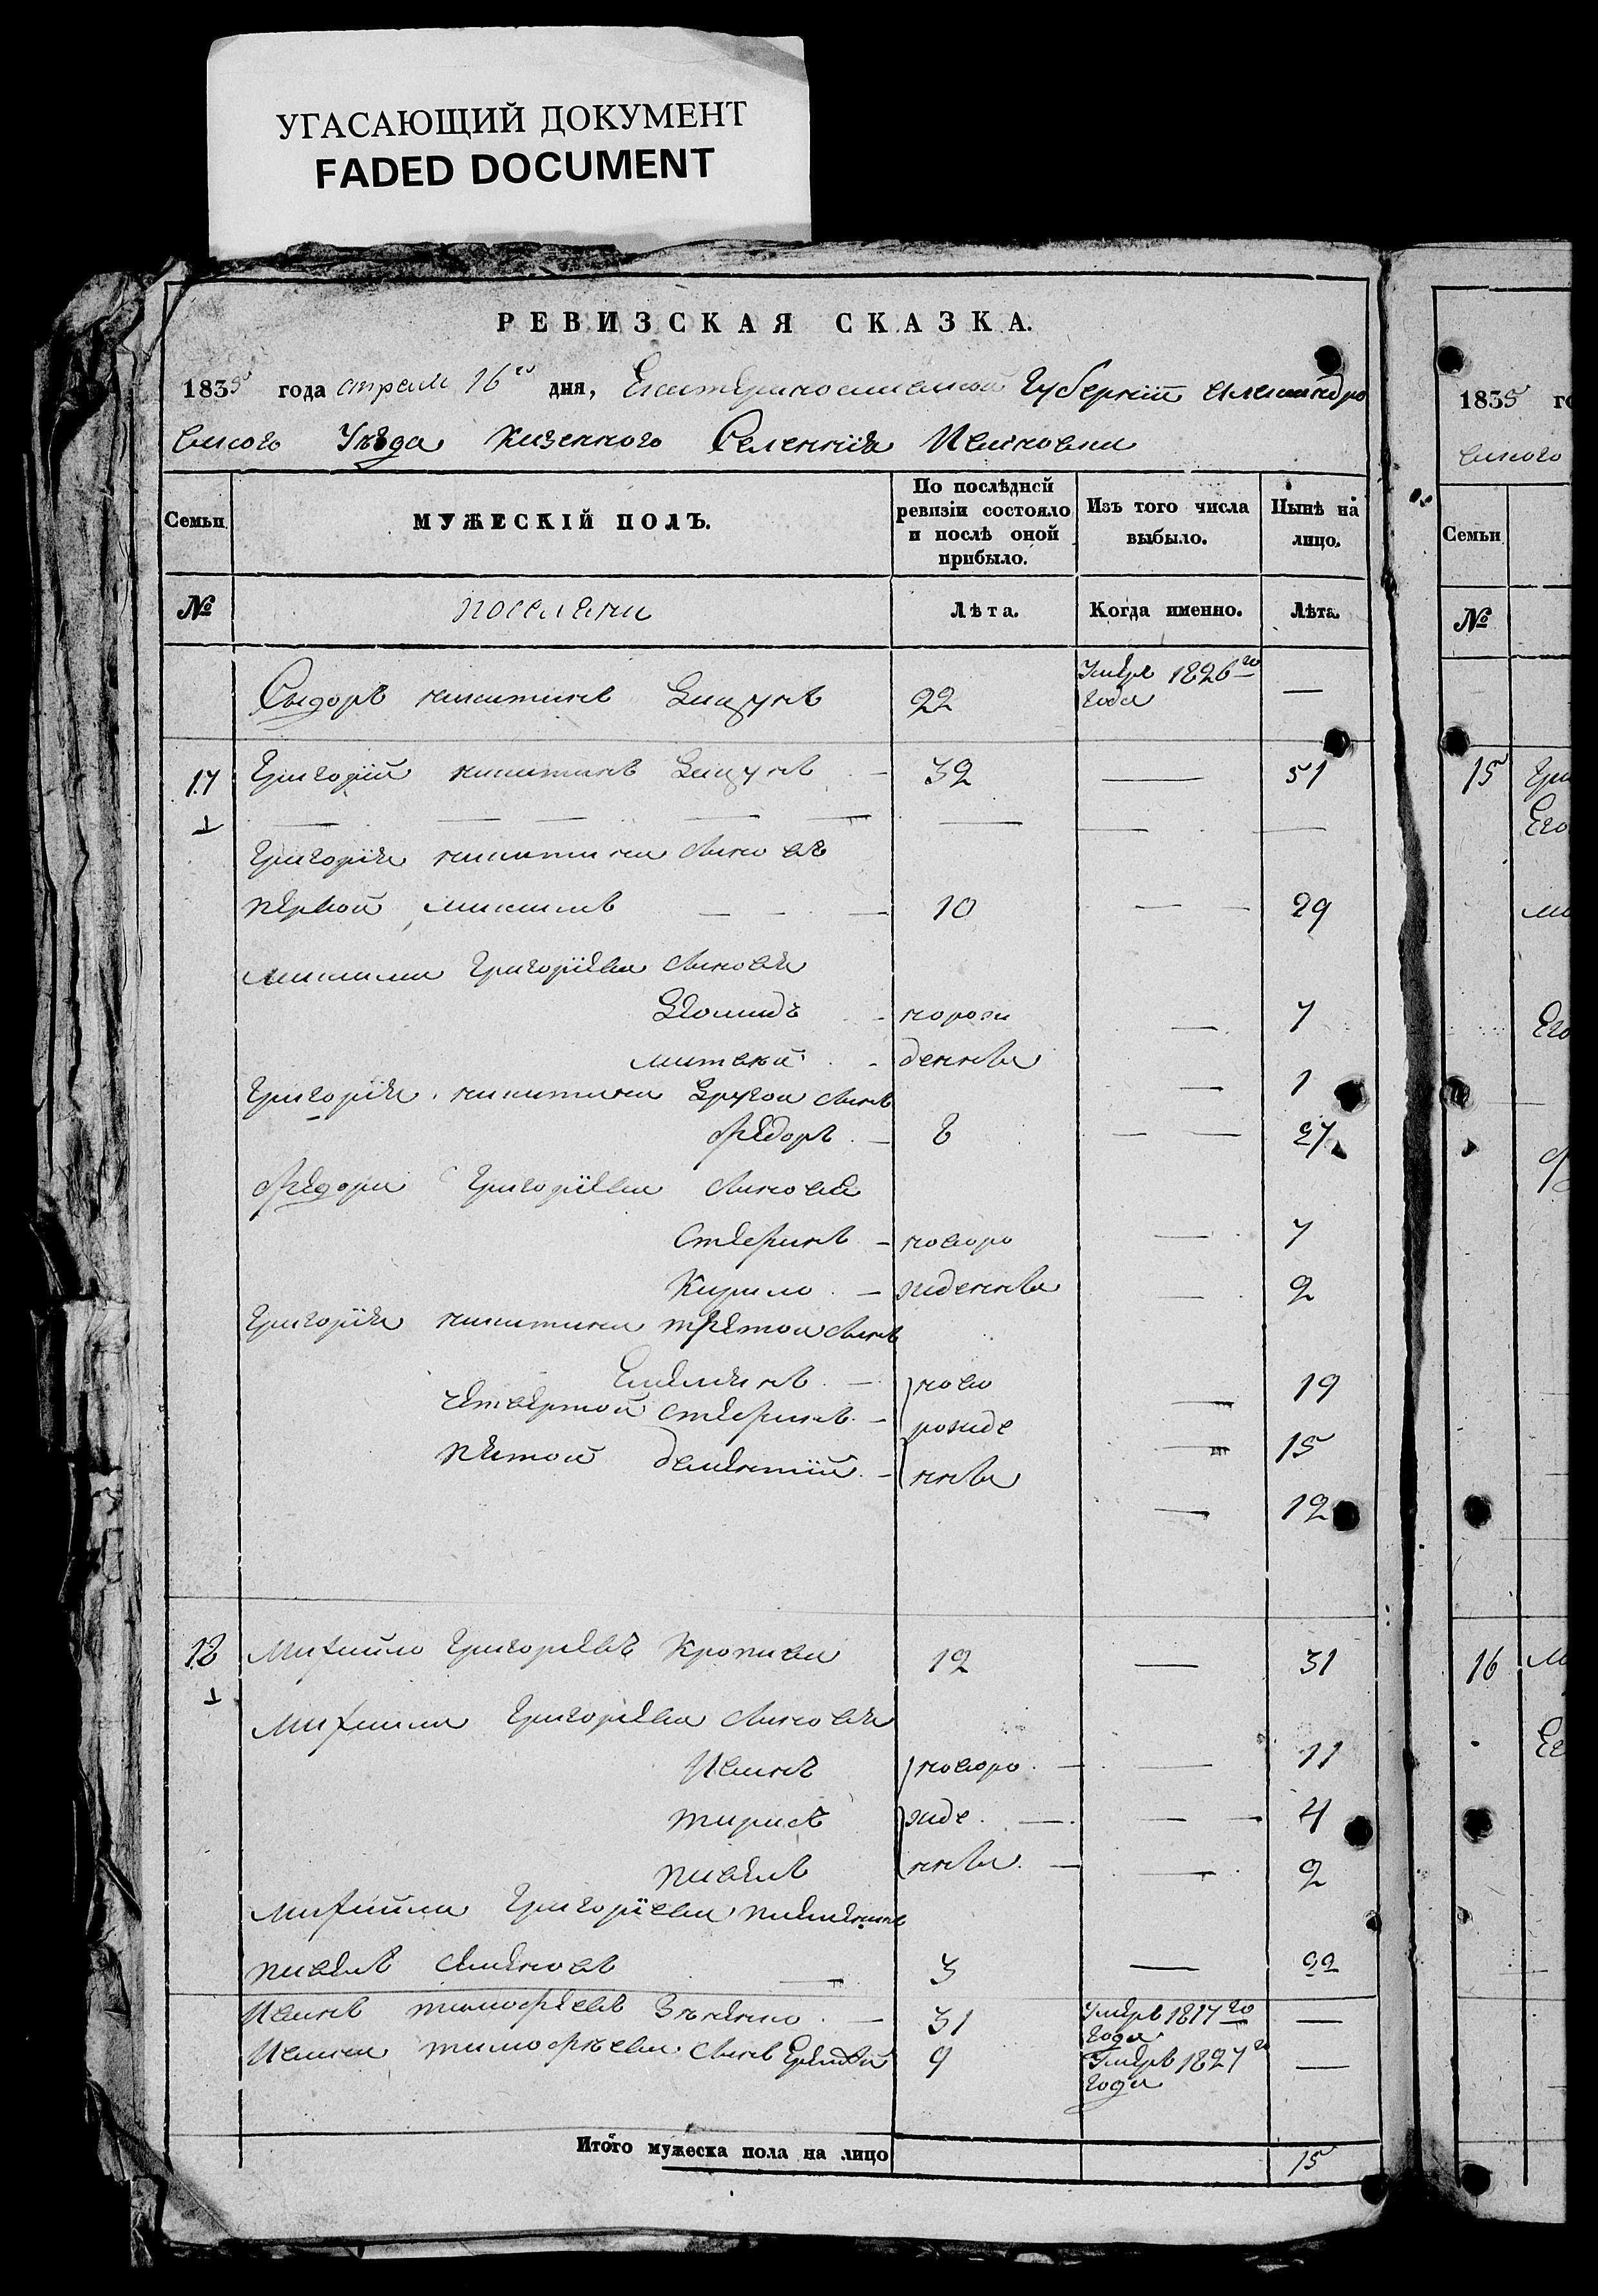 УГАСАЮЩИЙ ДОКУМЕНТ
FADED DOCUMENT
РЕВИЗСКАЯ СКАЗКА.
1835 года апреля 16го дня, Екатеринославской Губернiи Александро
вского Уезда казенного Селенiя Ивановки
Семьи
МУЖЕСКІЙ ПОЛЪ.
По послѣдней ревизіи состояло и послѣ оной прибыло.
Изъ того числа выбыло.
Нынѣ на лицо.
№ поселяни Лѣта. Когда именно. Лѣта.
Сыдоръ никитинъ 22 Умеръ 1826го года —
17 Григорiй никитинъ 32 — 51
Григорiя никитина сыновя
первой максимъ 10 — 29
максима Григорiева сыновя
Демидъ 7
матвей 1
Григорiя никитина Другои сынъ
Федоръ 8 — 27
Федора Григорiева сыновя
Стефанъ — новоро — 7
Кирило — жденныя — 2
Григорiя никитина третои сынъ
Емелянъ — ново — 19
четвертой стефанъ — рожде — 15
пятой — нныя — 12
18 Михайло Григорiевъ Кропива 12 — 31
Михайла Григорiева сыновя
Иванъ новоро — 11
тарасъ жде — 4
павелъ нныя — 2
Михайла Григорiева племяникъ
павелъ семеновъ 3 — 22
Иванъ тимофеевъ 31 Умеръ 1817го года —
Ивана тимофеева сынъ Еремей 9 Умеръ 1827го года —
Итого мужеска пола на лицо 15
1835 го
вского
Семьи
№
15 Гри
Его
Его
16 М
Ег